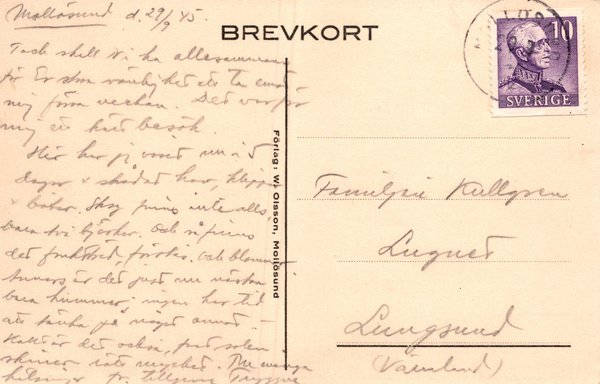 Mollösund d. 29/9 45.
BREVKORT
Tack skall Ni ha allesammans
för Er stora vänlighet att ta emot
mig förra veckan. Det var för
mig ett kärt besök.
Här har jag varit nu i 2
dagar & skådat hav, klippor
& båtar. Skog finns inte alls
bara två björkar. Och så finns
det fruktträd, förstås, och blommor
annars är det just nu nästan
bara hummer: ingen har tid
att tänka på något annat.
Kallt är det också, fast solen
skiner rätt mycket. Med många
hälsningar fr. tillgivne Tryggve
Förlag: W. Olsson, Mollösund
10
SVERIGE
Familjen Kullgren
Lugnet
Lungsund
(Värmland)